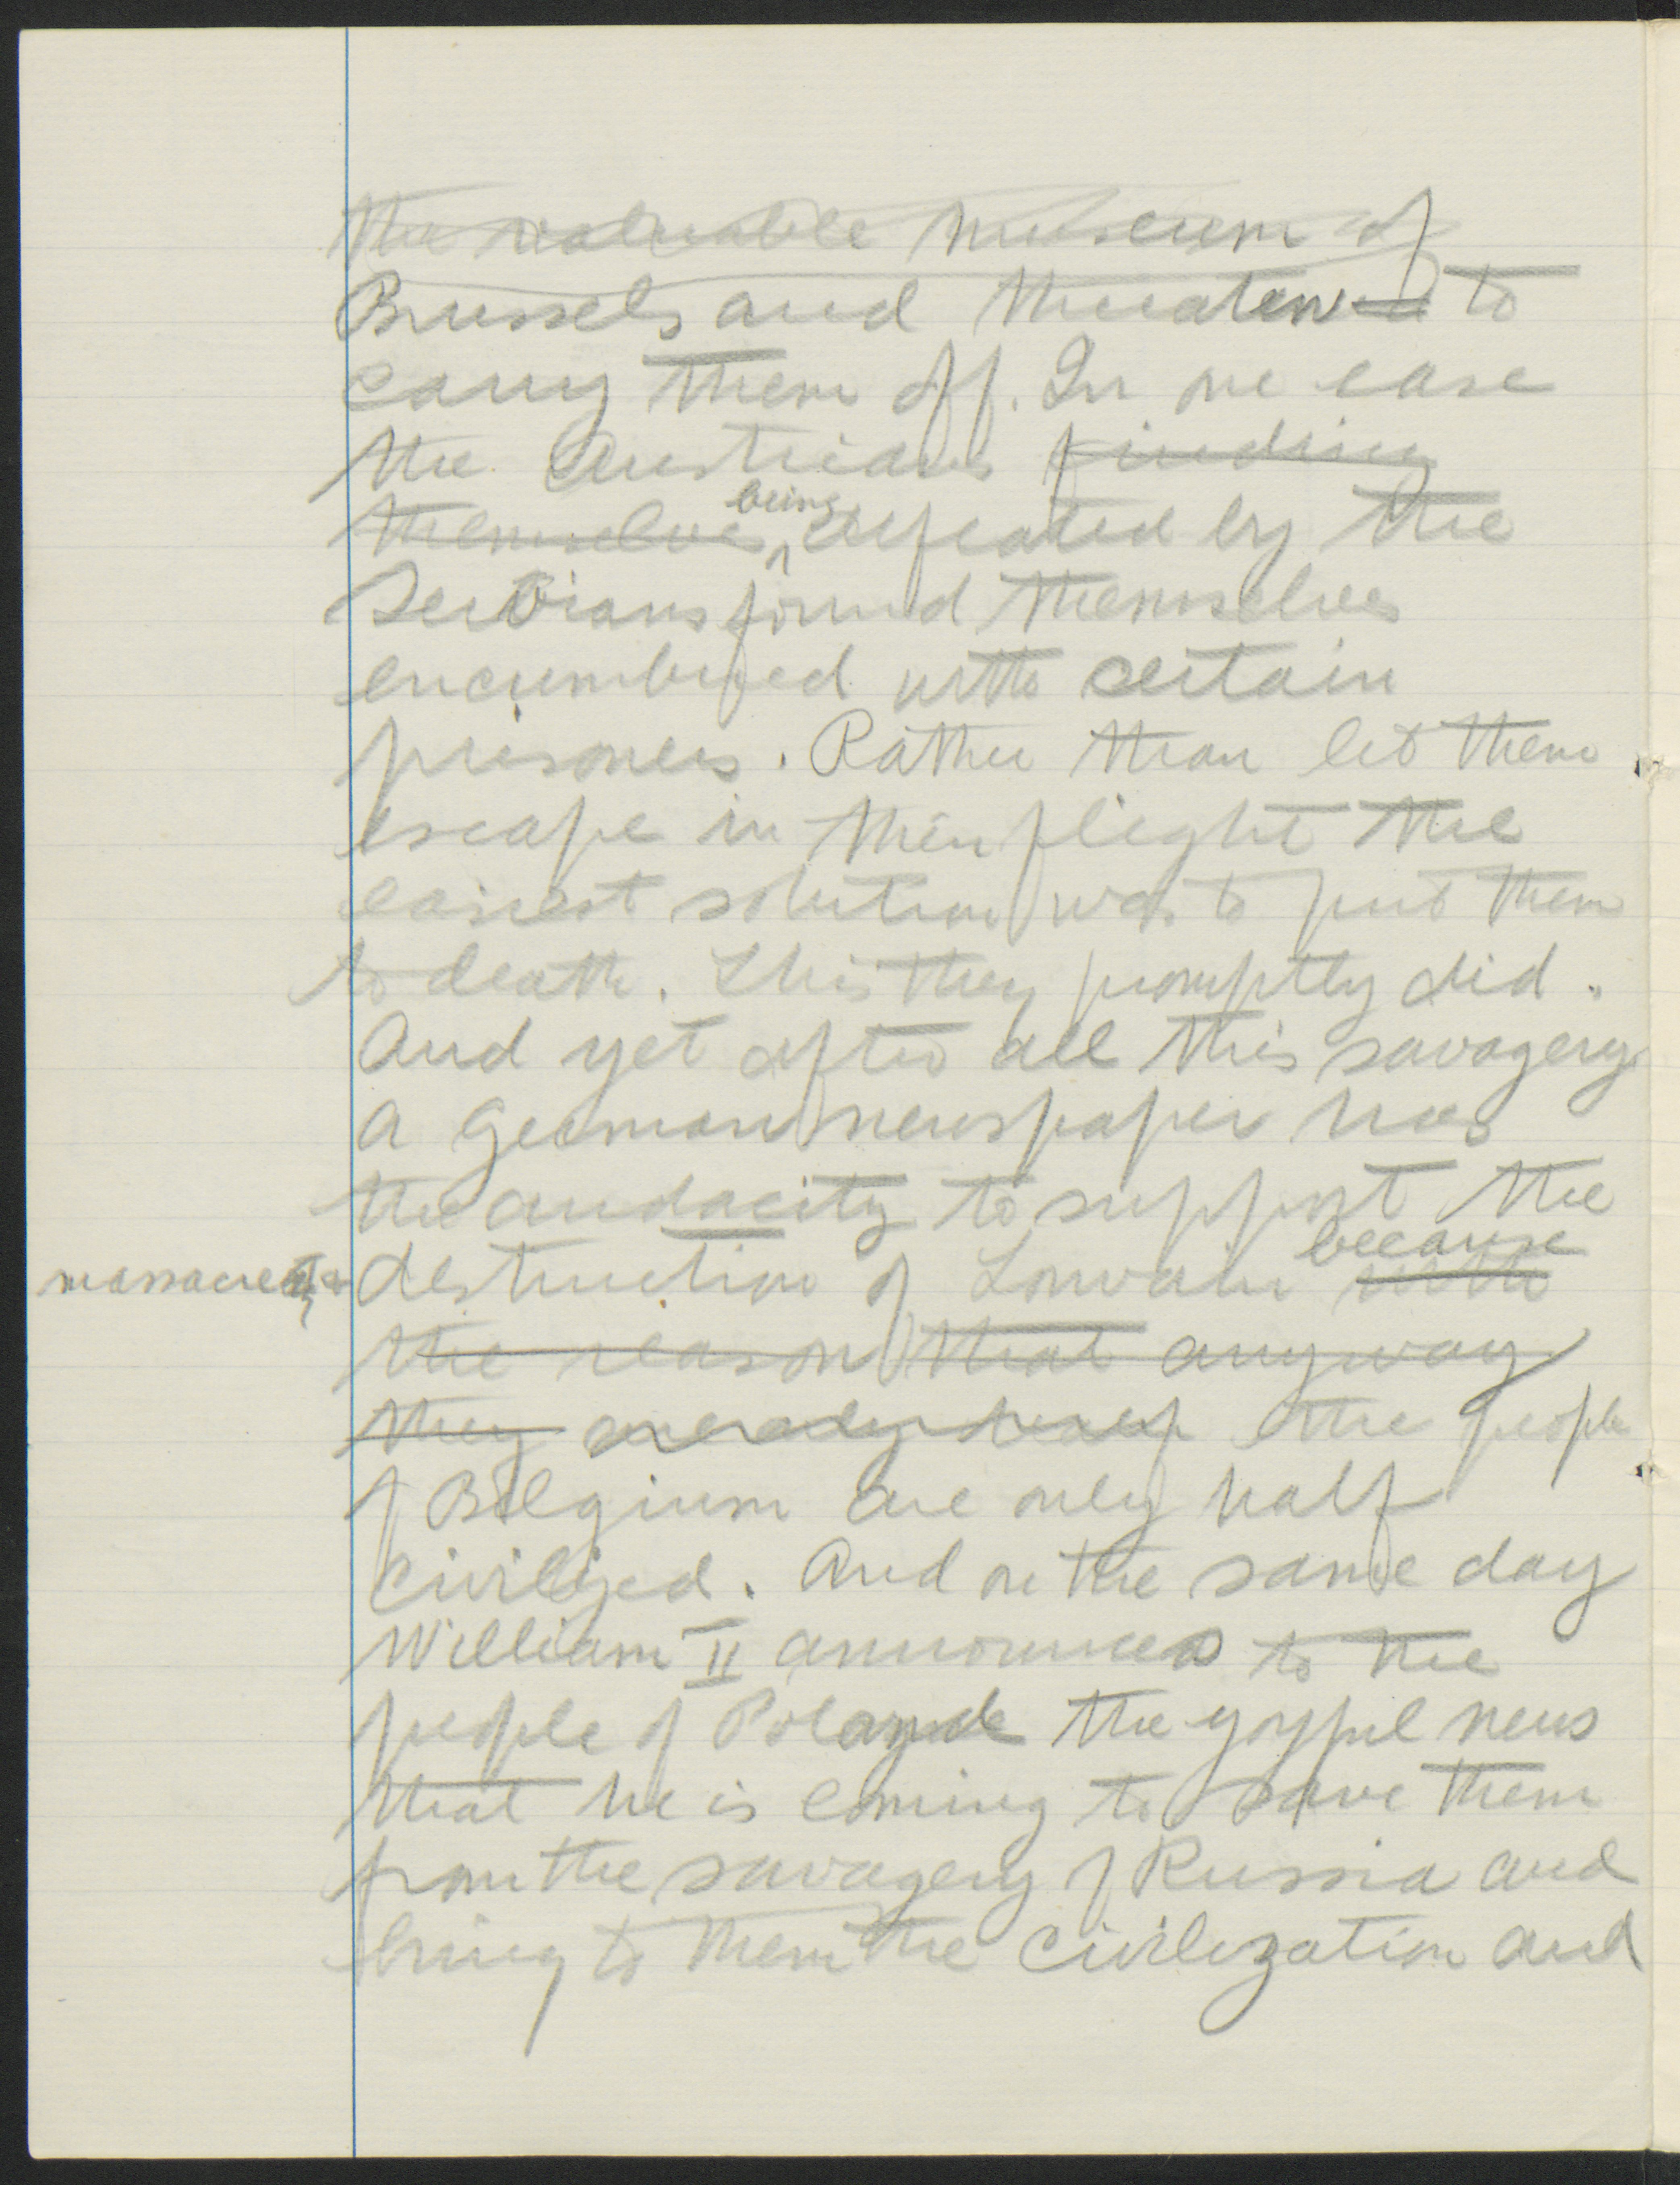 the valuable museum of
Brussels and threatened to
carry them off. In one case
the Austrians finding
themselves being defeated by the
Serbians found themselves
encumbered with certain
prisoners. Rather than let them
escape in their flight the
easiest solution was to put them
to death. This they promptly did.
And yet after all this savagery
a German newspaper has
the audacity to support the
massacre & destruction of Louvain with because
the reason that anyway
they are only half the people
of Belgium are only half
civilized. And on the same day
William II announces to the
people of Poland the gospel news
that he is coming to save them
from the savagery of Russia and
bring to them the civilization and